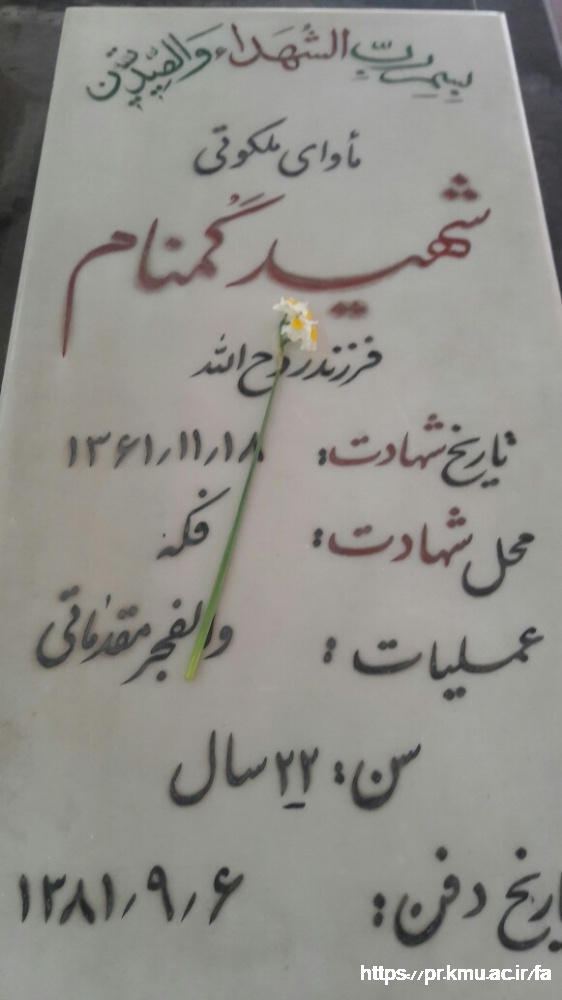 بسم رب الشهداء والصدیقین
مأوای ملکوتی
شهید گمنام
فرزند روح الله
تاریخ شهادت: ۱۳۶۱/۱۱/۱۸
محل شهادت: فکه
عملیات: والفجر مقدماتی
سن: ۲۲ سال
تاریخ دفن: ۱۳۸۱/۹/۶
https://pr.kmu.ac.ir/fa